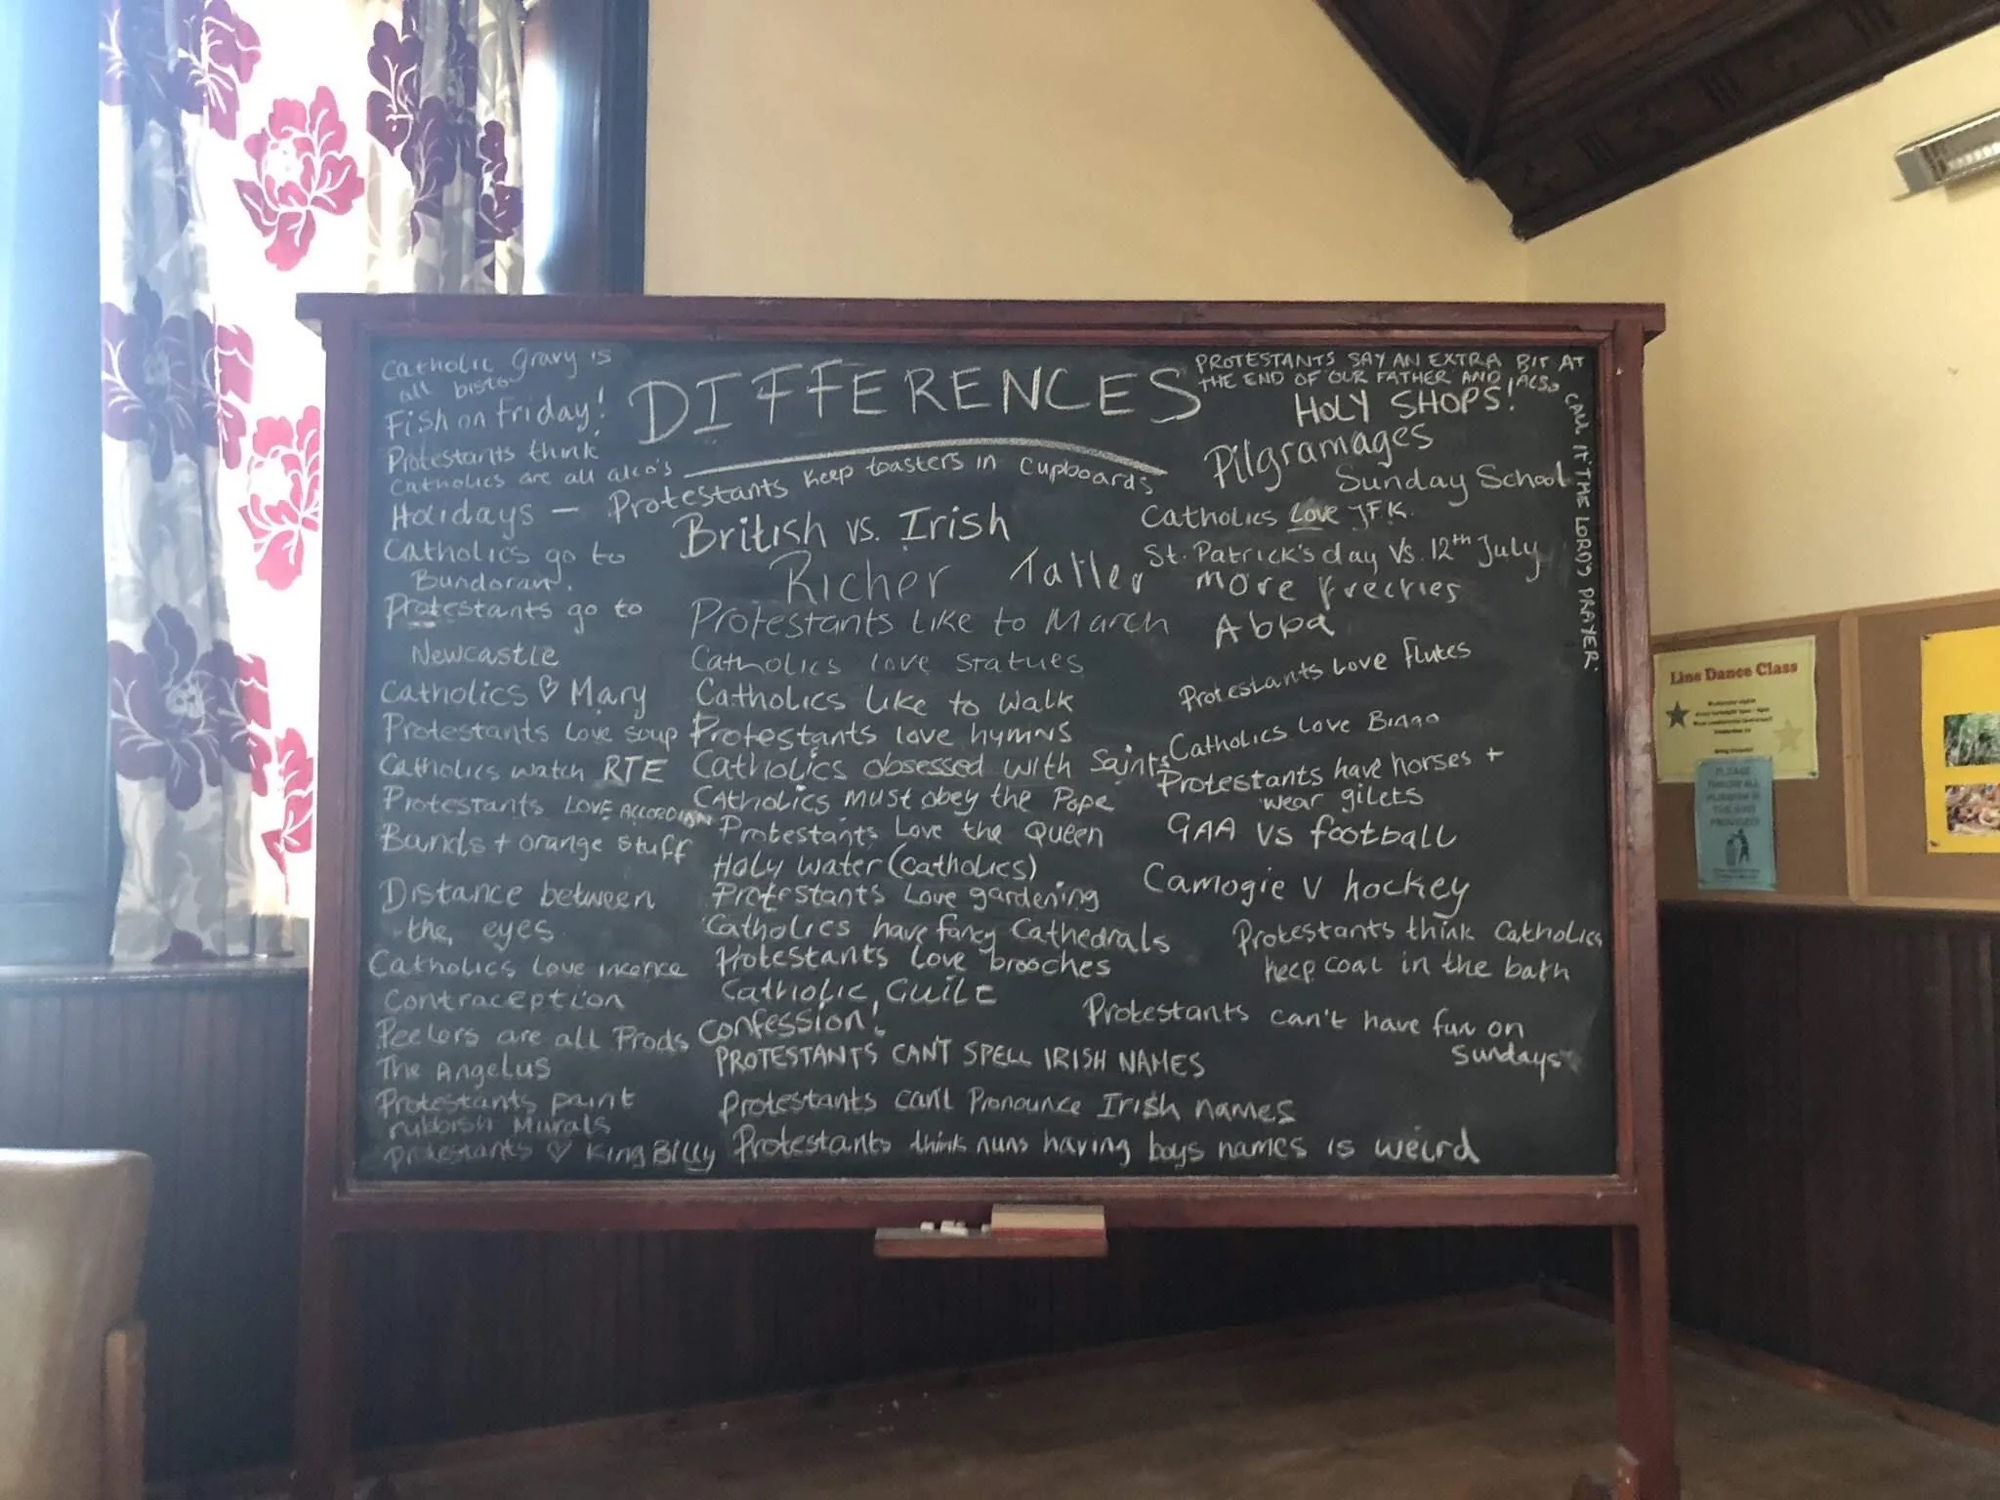 DIFFERENCES
Catholic Gravy is
all bisto
Fish on Friday!
Protestants think
Catholics are all alco's
Holidays —
Catholics go to
Bundoran.
Protestants go to
Newcastle
Catholics ♡ Mary
Protestants Love soup
Catholics watch RTE
Protestants LOVE ACCORDIAN
Bands + orange stuff
Distance between
the eyes
Catholics Love incence
Contraception
Peelers are all Prods
The Angelus
Protestants paint
rubbish Murals
Protestants ♡ King Billy
Protestants keep toasters in cupboards
British vs. Irish
Richer Taller
Protestants like to March
Catholics love statues
Catholics like to walk
Protestants love hymns
Catholics obsessed with Saints
Catholics must obey the Pope
Protestants Love the Queen
Holy Water (Catholics)
Protestants Love gardening
Catholics have fancy Cathedrals
Protestants Love brooches
Catholic GUILT
Confession!
PROTESTANTS CAN'T SPELL IRISH NAMES
Protestants can't Pronounce Irish names
Protestants think nuns having boys names is weird
PROTESTANTS SAY AN EXTRA BIT AT
THE END OF OUR FATHER AND ALSO
CALL IT THE LORD'S PRAYER.
HOLY SHOPS!
Pilgramages
Sunday School
Catholics Love JFK.
St. Patrick's day Vs. 12th July
More freckles
Abba
Protestants Love flutes
Catholics Love Bingo
Protestants have horses +
wear gilets
GAA vs football
Camogie V hockey
Protestants think Catholics
keep coal in the bath
Protestants can't have fun on
Sundays
Line Dance Class
PLEASE